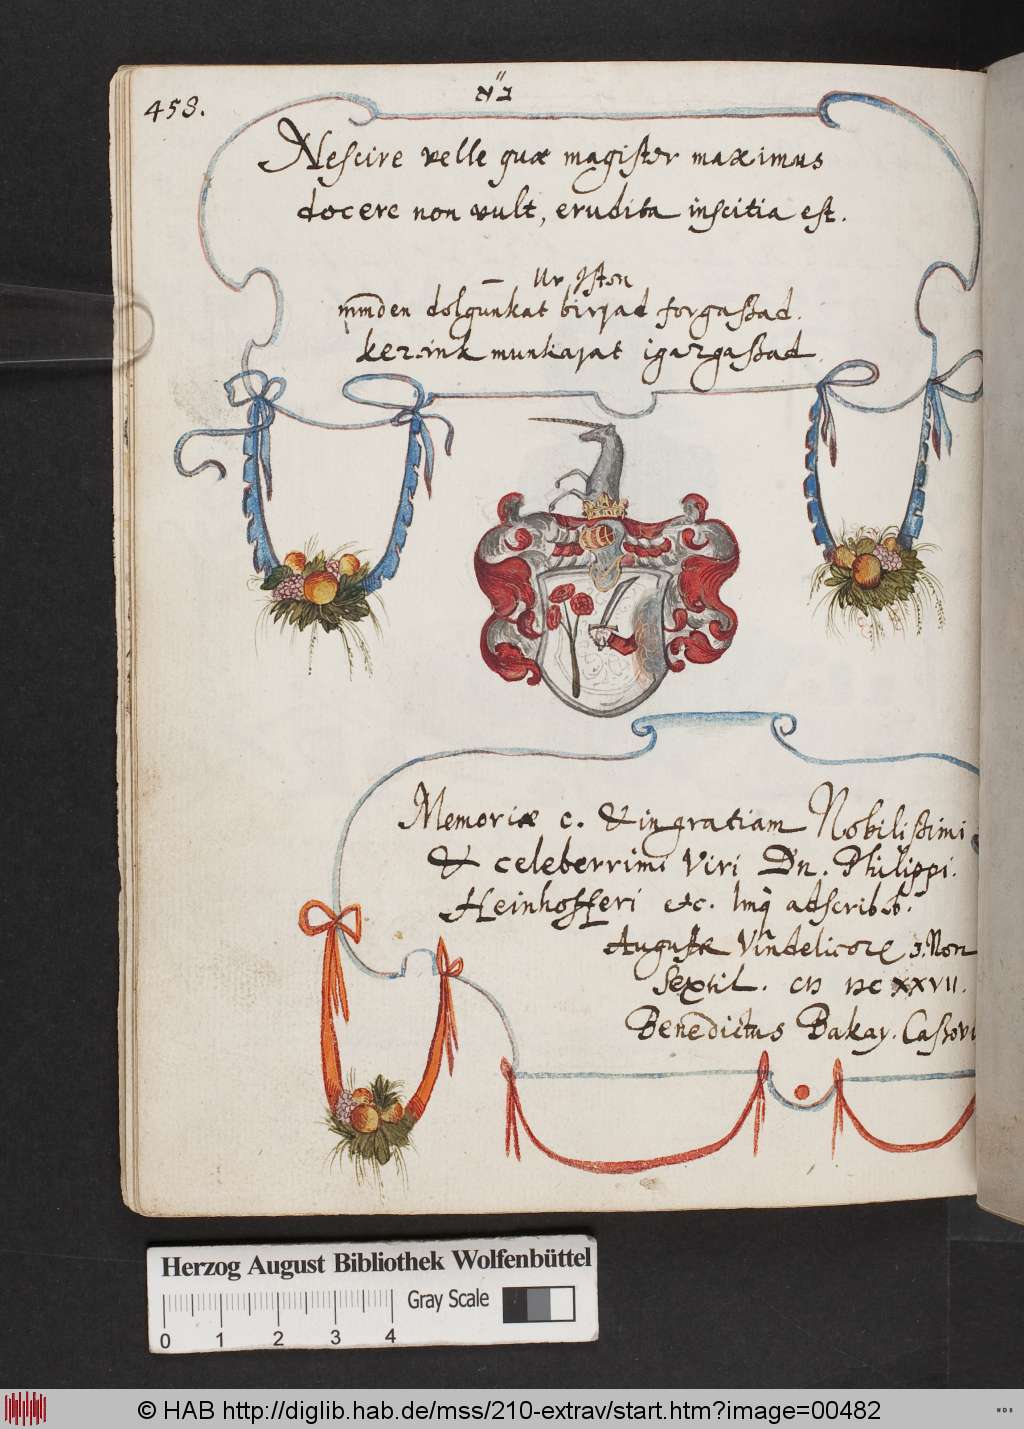 458.
Nescire velle quæ magister maximus
docere non vult, erudita inscitia est.
Ur Iston
minden dolgunkat birjad forgaßad.
kezeink munkajat igazgaßad.
Memoriæ c. & in gratiam Nobilißimi
& celeberrimi Viri Dn. Philippi.
Heinhofferi etc. lmq̃ adscribsb.
Augustæ Vindelicor. 3. Non
Sextil. XXVII.
Benedictus Bakay. Caßovi
Herzog August Bibliothek Wolfenbüttel
Gray Scale
0 1 2 3 4
© HAB http://diglib.hab.de/mss/210-extrav/start.htm?image=00482